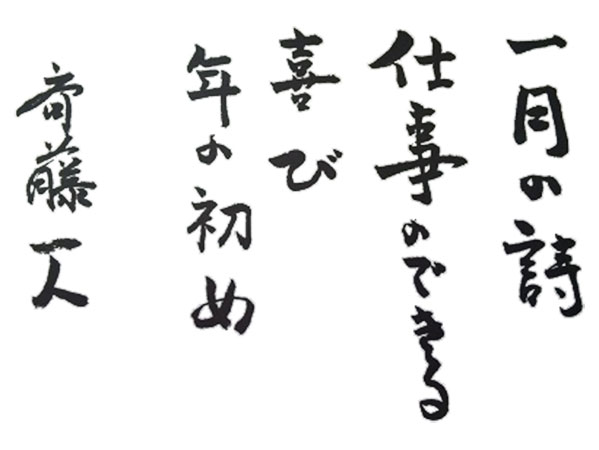 一月の詩
仕事のできる
喜び
年の初め
斉藤一人